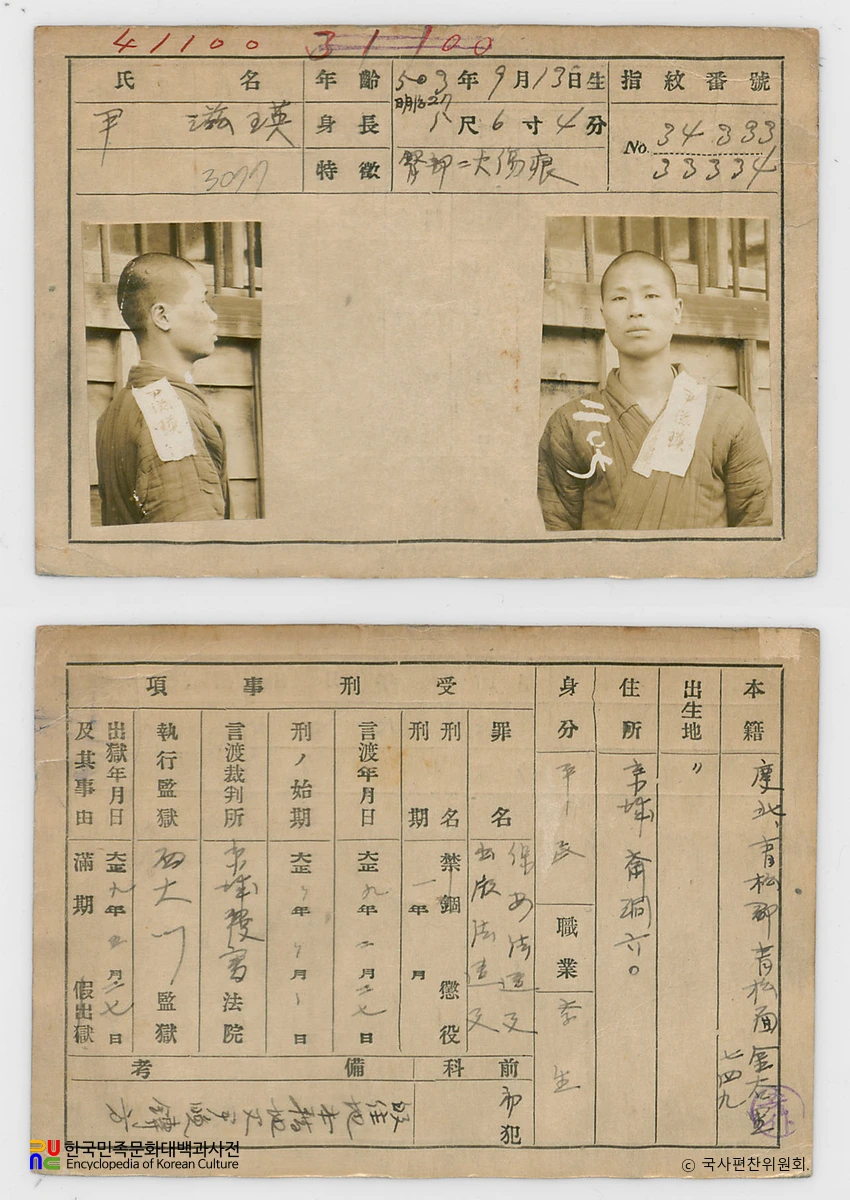 41100 31100
氏名 尹滋瑛
3077
年齡 503年9月13日生
明治27
身長 尺6寸4分
特徵 臀部二次傷痕
指紋番號
No. 34333
33334
尹滋瑛
尹滋瑛
本籍 慶北青松郡青松面
七四九
出生地 〃
住所 京城齋洞六〇
身分 平民
職業 学生
受刑事項
罪名 保安法違反
出版法違反
刑名 禁錮 懲役
刑期 一年 月
言渡年月日 大正九年二月二七日
刑ノ始期 大正〃年〃月〃日
言渡裁判所 京城覆審法院
執行監獄 西大門監獄
出獄年月日 大正九年 月二七日
及其事由 滿期 假出獄
前科 初犯
備考
한국민족문화대백과사전
Encyclopedia of Korean Culture
© 국사편찬위원회.